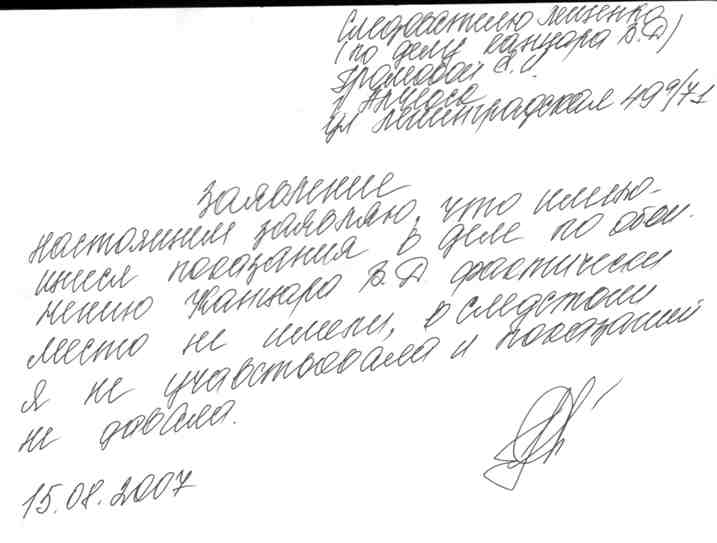 Следователю Мизенко
(по делу Канцара В.Д)
Громовой
ул Ленинградская 49а/71
Заявление
Настоящим заявляю, что имею-
щиеся показания в деле по обви-
нению Канцара В.Д фактически
место не имели, в следствии
я не учавствовала и показаний
не давала.
15.08.2007